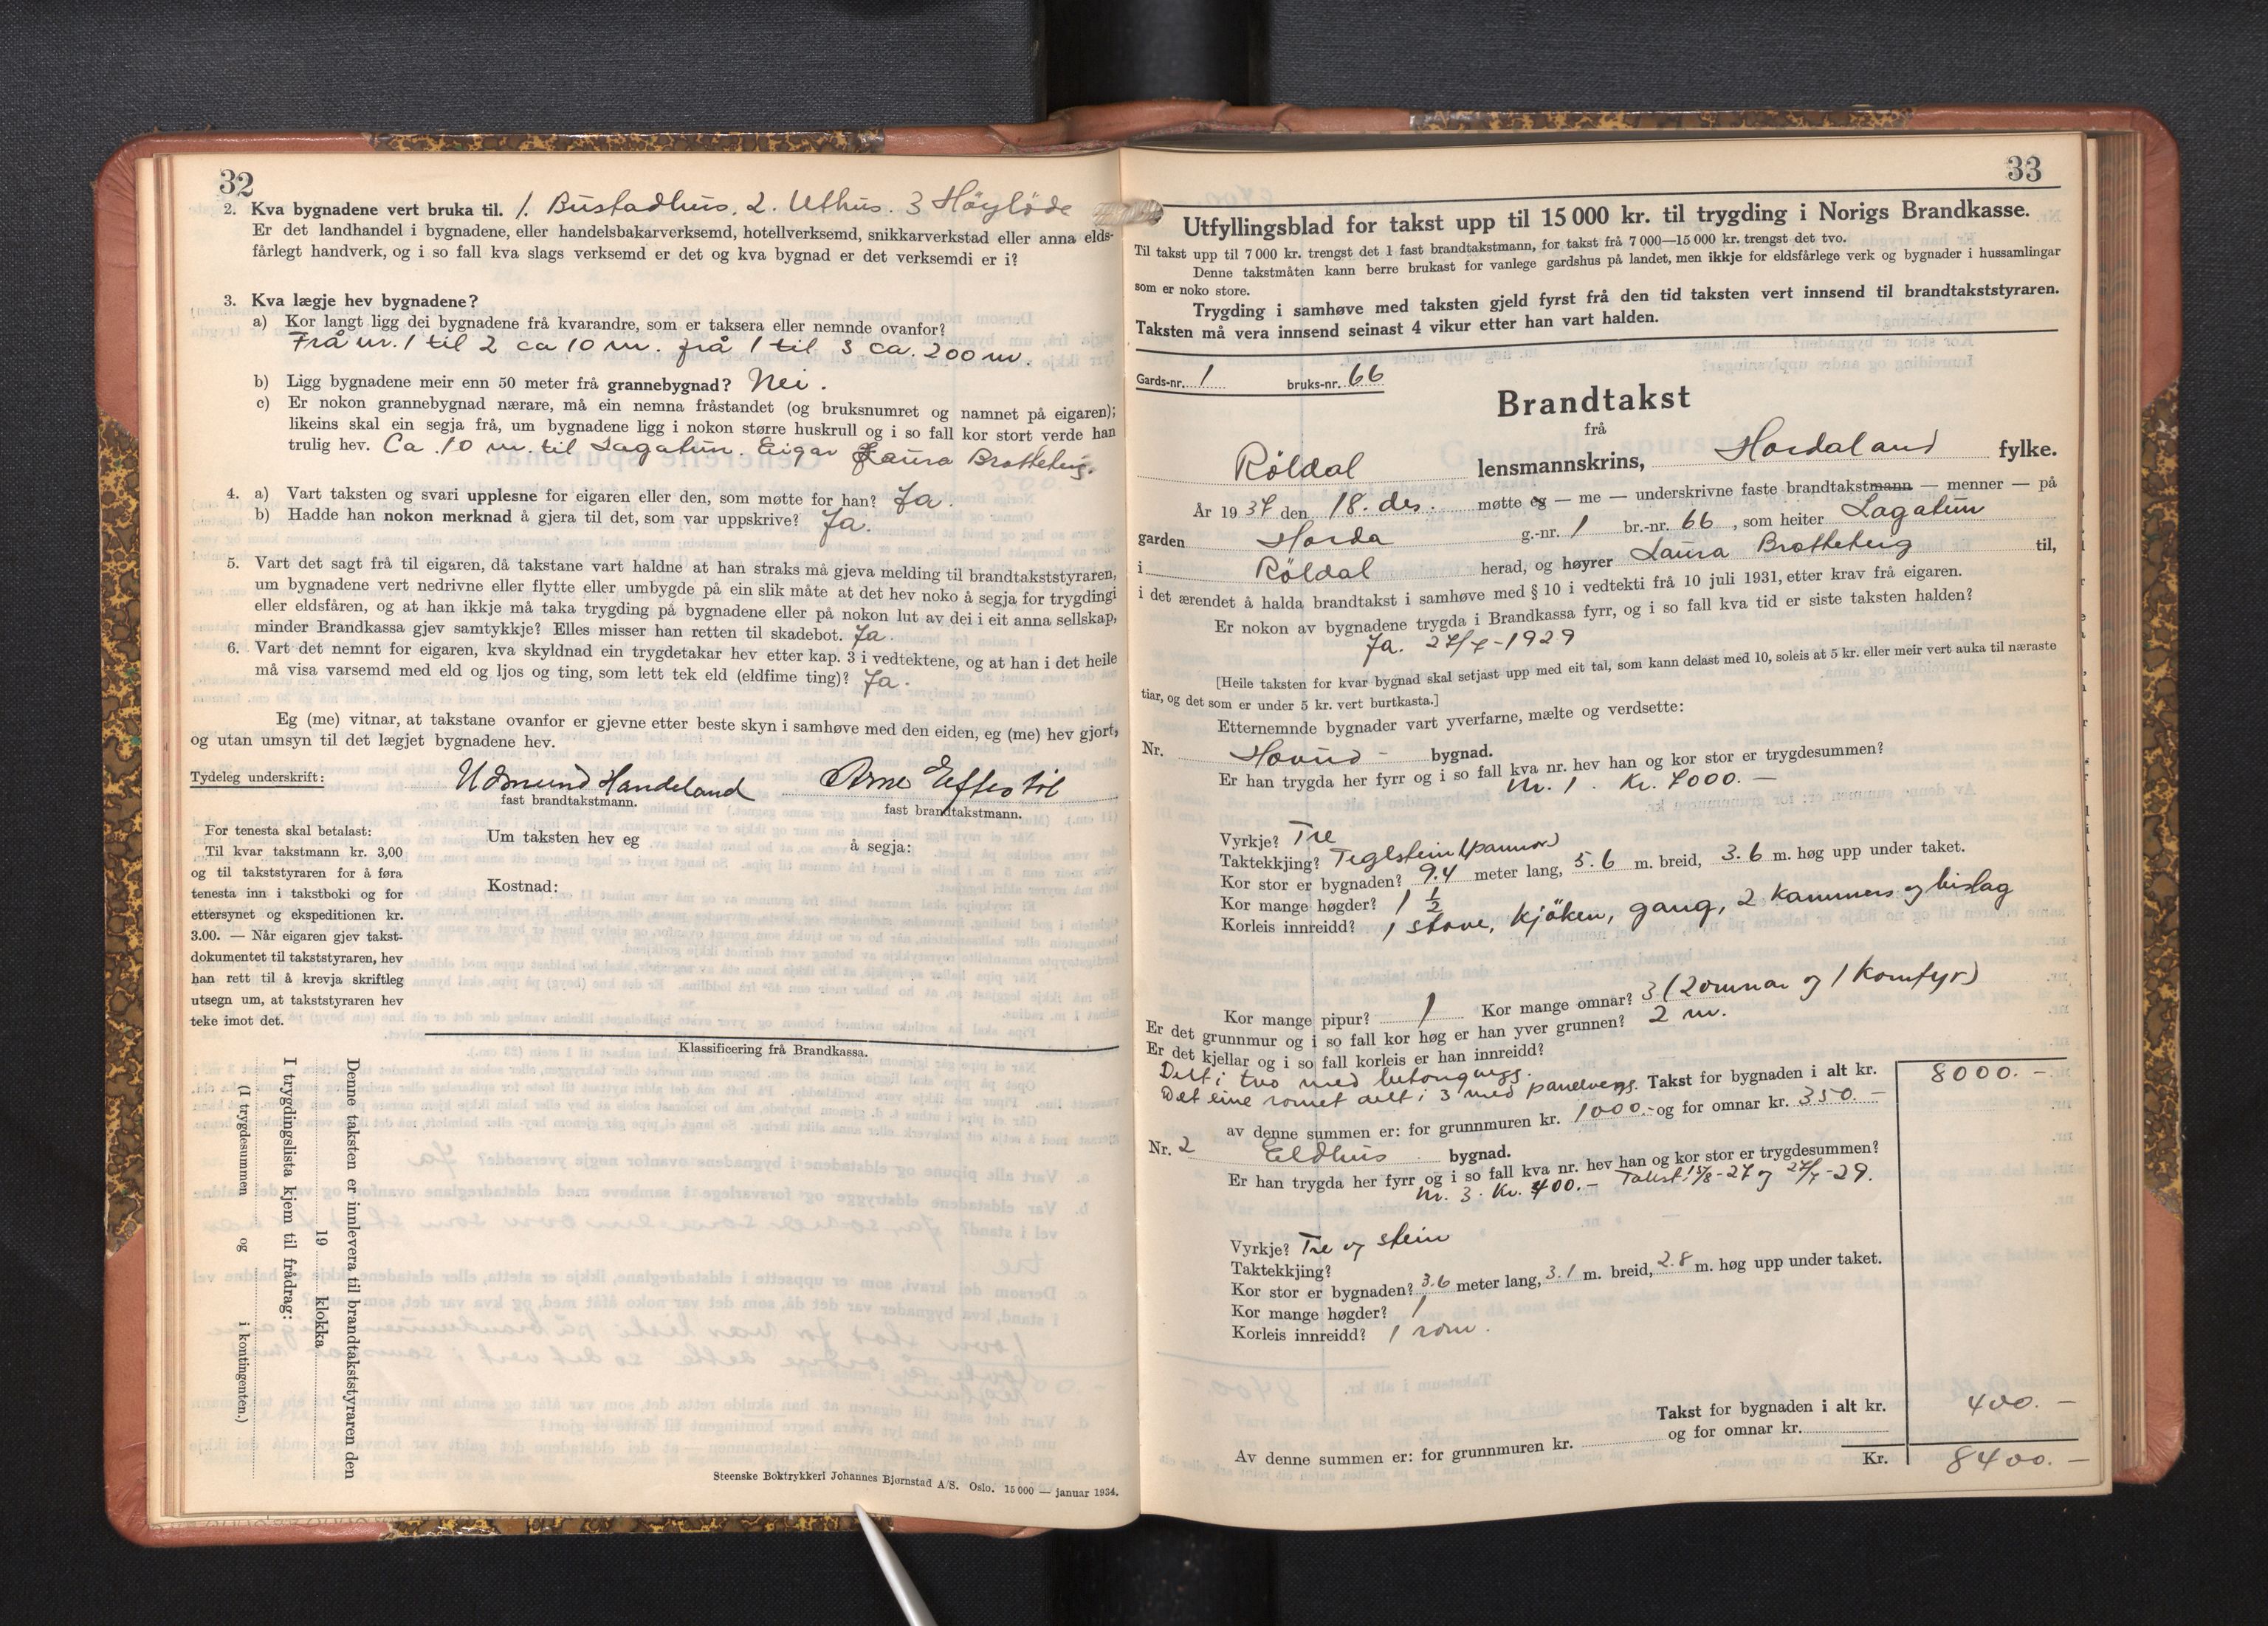 32
2. Kva bygnadene vert bruka til. 1. Bustadhus. 2. Uthus. 3 Höyløde
Er det landhandel i bygnadene, eller handelsbakarverksemd, hotellverksemd, snikkarverkstad eller anna elds-
fårlegt handverk, og i so fall kva slags verksemd er det og kva bygnad er det verksemdi er i?
3. Kva lægje hev bygnadene?
a) Kor langt ligg dei bygnadene frå kvarandre, som er taksera eller nemnde ovanfor?
Frå nr. 1 til 2 ca 10 m. frå 1 til 3 ca. 200 m.
b) Ligg bygnadene meir enn 50 meter frå grannebygnad? Nei.
c) Er nokon grannebygnad nærare, må ein nemna fråstandet (og bruksnumret og namnet på eigaren);
likeins skal ein segja frå, um bygnadene ligg i nokon større huskrull og i so fall kor stort verde han
trulig hev. Ca. 10 m. til Lagatun. Eigar Laura Brotteberg.
4. a) Vart taksten og svari upplesne for eigaren eller den, som møtte for han? Ja.
b) Hadde han nokon merknad å gjera til det, som var uppskrive? Ja.
5. Vart det sagt frå til eigaren, då takstane vart haldne at han straks må gjeva melding til brandtakststyraren,
um bygnadene vert nedrivne eller flytte eller umbygde på ein slik måte at det hev noko å segja for trygdingi
eller eldsfåren, og at han ikkje må taka trygding på bygnadene eller på nokon lut av dei i eit anna sellskap,
minder Brandkassa gjev samtykkje? Elles misser han retten til skadebot. Ja.
6. Vart det nemnt for eigaren, kva skyldnad ein trygdetakar hev etter kap. 3 i vedtektene, og at han i det heile
må visa varsemd med eld og ljos og ting, som lett tek eld (eldfime ting)? Ja.
Eg (me) vitnar, at takstane ovanfor er gjevne etter beste skyn i samhøve med den eiden, eg (me) hev gjort,
og utan umsyn til det lægjet bygnadene hev.
Tydeleg underskrift: Udmund Handeland Arne Eftestöl
fast brandtakstmann. fast brandtakstmann.
For tenesta skal betalast:
Til kvar takstmann kr. 3,00
og til takststyraren for å føra
tenesta inn i takstboki og for
ettersynet og ekspeditionen kr.
3.00. — Når eigaren gjev takst-
dokumentet til takststyraren, hev
han rett til å krevja skriftleg
utsegn um, at takststyraren hev
teke imot det.
Um taksten hev eg å segja:
Kostnad:
Klassificering frå Brandkassa.
Denne taksten er innlevera til brandtakststyraren den
19 klokka
I trygdingslista kjem til frådrag:
(I trygdesummen og i kontingenten.)
Steenske Boktrykkeri Johannes Bjørnstad A/S. Oslo. 15 000 — januar 1934.
33
Utfyllingsblad for takst upp til 15 000 kr. til trygding i Norigs Brandkasse.
Til takst upp til 7 000 kr. trengst det 1 fast brandtakstmann, for takst frå 7 000—15 000 kr. trengst det tvo.
Denne takstmåten kann berre brukast for vanlege gardshus på landet, men ikkje for eldsfårlege verk og bygnader i hussamlingar
som er noko store.
Trygding i samhøve med taksten gjeld fyrst frå den tid taksten vert innsend til brandtakststyraren.
Taksten må vera innsend seinast 4 vikur etter han vart halden.
Gards-nr. 1 bruks-nr. 66
Brandtakst
frå
Röldal lensmannskrins, Hordaland fylke.
År 1937 den 18. des. møtte eg — me — underskrivne faste brandtakstmann — menner — på
garden Horda g.-nr. 1 br.-nr. 66, som heiter Lagatun
i Röldal herad, og høyrer Laura Brotteberg til,
i det ærendet å halda brandtakst i samhøve med § 10 i vedtekti frå 10 juli 1931, etter krav frå eigaren.
Er nokon av bygnadene trygda i Brandkassa fyrr, og i so fall kva tid er siste taksten halden?
Ja. 27/7-1929
[Heile taksten for kvar bygnad skal setjast upp med eit tal, som kann delast med 10, soleis at 5 kr. eller meir vert auka til næraste
tiar, og det som er under 5 kr. vert burtkasta.]
Etternemnde bygnader vart yverfarne, mælte og verdsette:
Nr. Hovud- bygnad.
Er han trygda her fyrr og i so fall kva nr. hev han og kor stor er trygdesummen?
Nr. 1. Kr. 7000. —
Vyrkje? Tre
Taktekkjing? Teglstein (pannor)
Kor stor er bygnaden? 9.4 meter lang, 5.6 m. breid, 3.6 m. høg upp under taket.
Kor mange høgder? 1 1/2
Korleis innreidd? 1 stove, kjöken, gang, 2 kammers og bislag
Kor mange pipur? 1 Kor mange omnar? 3 (2 omnar og 1 komfyr)
Er det grunnmur og i so fall kor høg er han yver grunnen? 2 m.
Er det kjellar og i so fall korleis er han innreidd?
Delt i tvo med betongvegg.
Det eine romet delt i 3 med panelvegg. Takst for bygnaden i alt kr. 8000. —
av denne summen er: for grunnmuren kr. 1000.- og for omnar kr. 350. —
Nr. 2 Eldhus bygnad.
Er han trygda her fyrr og i so fall kva nr. hev han og kor stor er trygdesummen?
Nr. 3. Kr. 400. — Takst: 15/8-27 og 27/7-29.
Vyrkje? Tre og stein
Taktekkjing?
Kor stor er bygnaden? 3.6 meter lang, 3.1 m. breid, 2.8 m. høg upp under taket.
Kor mange høgder? 1
Korleis innreidd? 1 rom.
Takst for bygnaden i alt kr. 400. —
Av denne summen er: for grunnmuren kr. og for omnar kr.
Kr. 8400. —